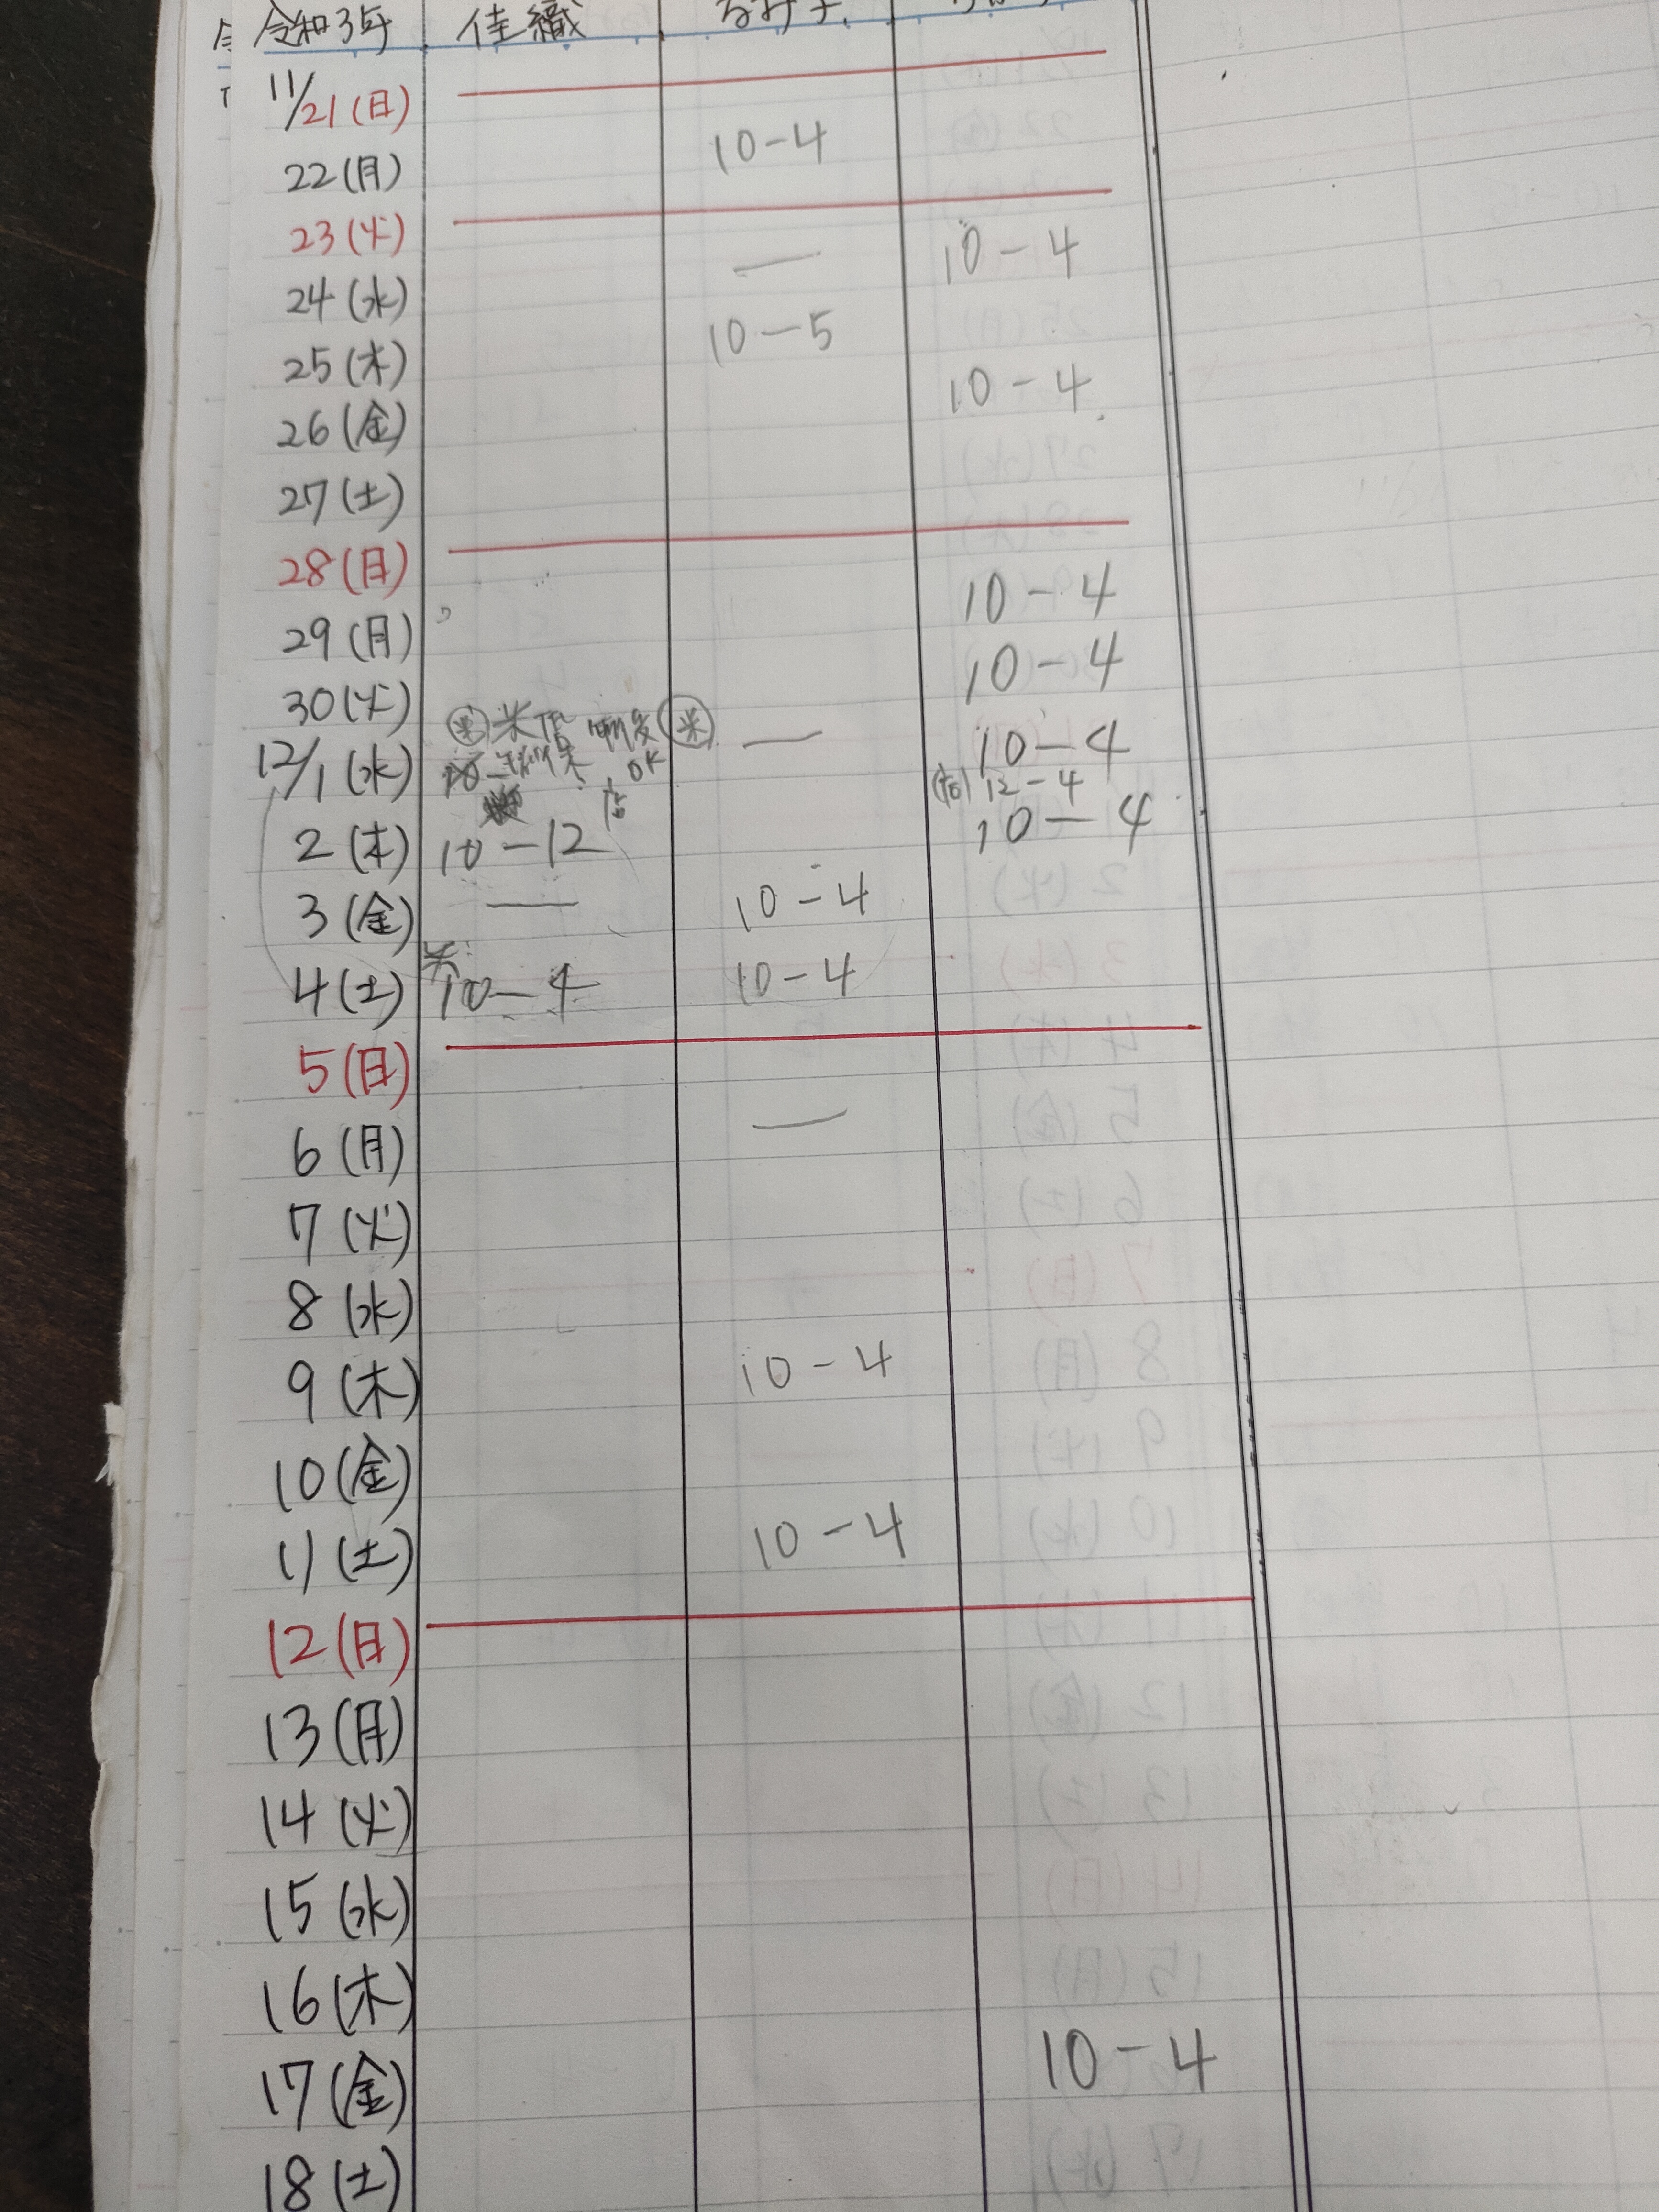 令和3年 佳織
11/21(日)
22(月) 10-4
23(火)
24(水) — 10-4
25(木) 10-5
26(金) 10-4
27(土)
28(日)
29(月) 10-4
30(火) 10-4
12/1(水) — 10-4
OK 12-4
2(木) 10-12 10-4
3(金) — 10-4
4(土) 10-4 10-4
5(日)
6(月) —
7(火)
8(水)
9(木) 10-4
10(金)
11(土) 10-4
12(日)
13(月)
14(火)
15(水)
16(木)
17(金) 10-4
18(土)